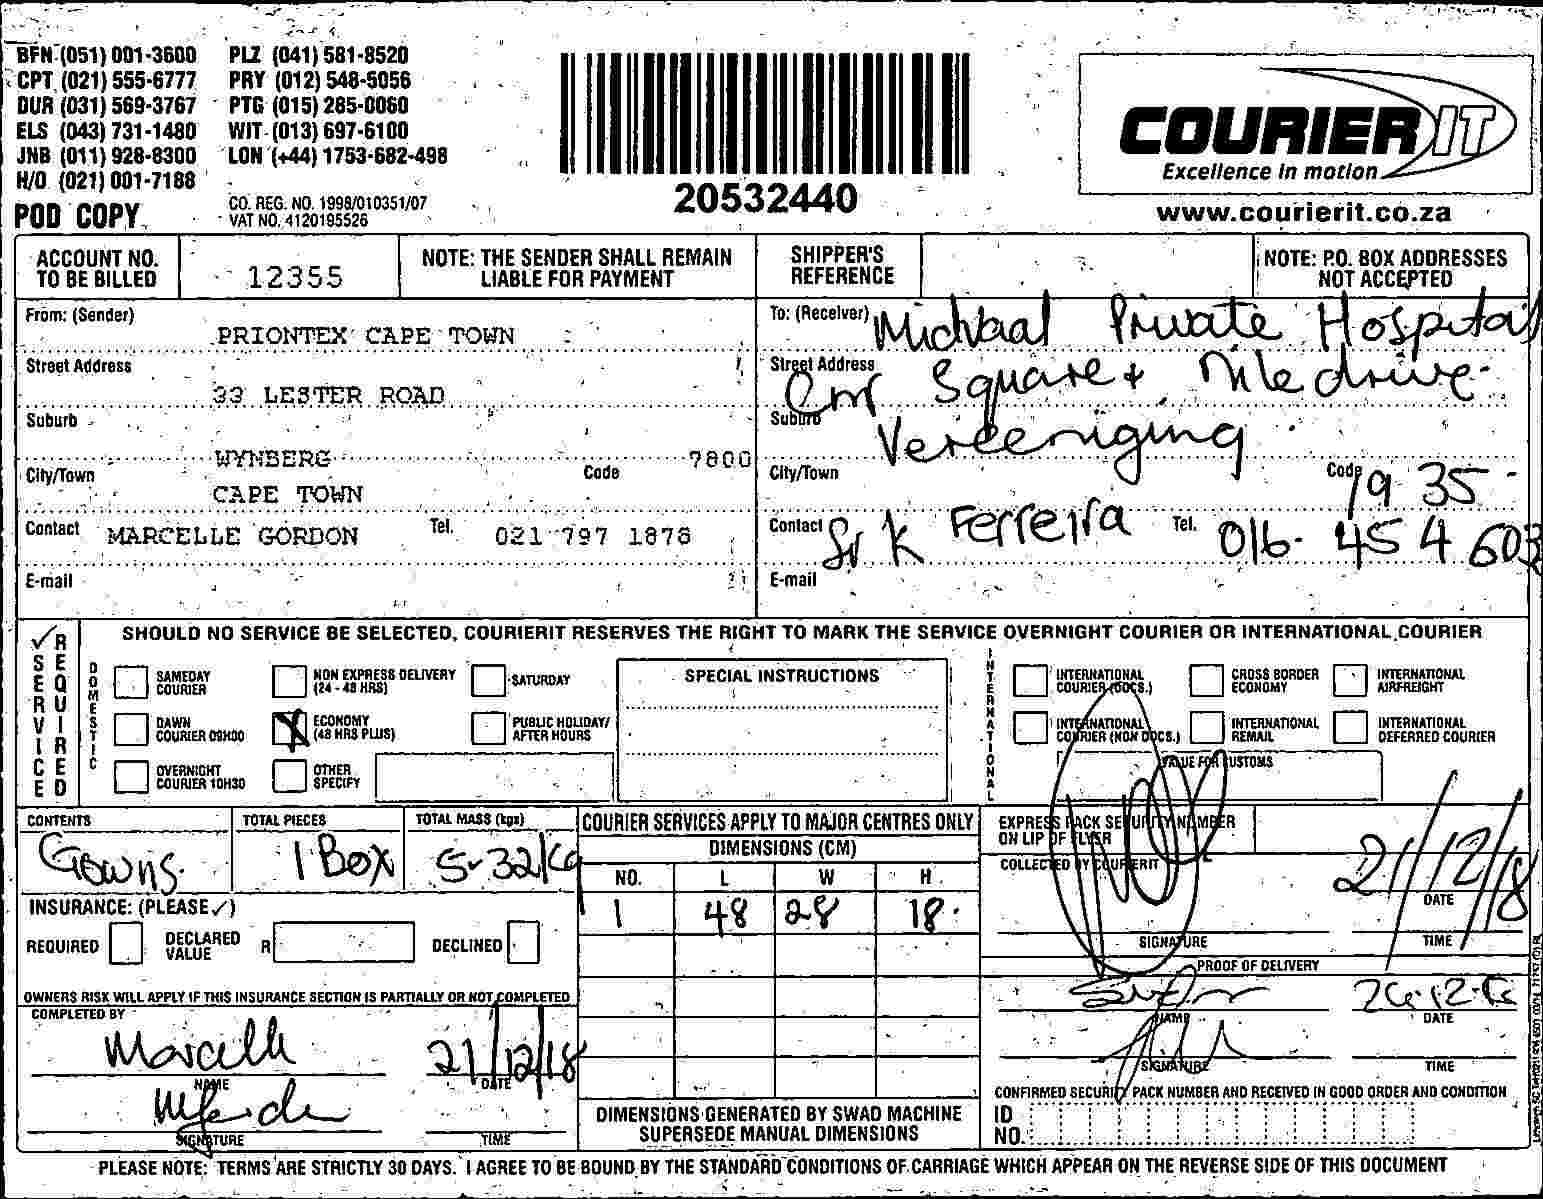 BFN (051) 001-3600 PLZ (041) 581-8520
CPT (021) 555-6777 PRY (012) 548-5056
DUR (031) 569-3767 PTG (015) 285-0060
ELS (043) 731-1480 WIT (013) 697-6100
JNB (011) 928-8300 LON (+44) 1753-682-498
H/O (021) 001-7188
CO. REG. NO. 1998/010351/07
POD COPY VAT NO. 4120195526
20532440
COURIER IT
Excellence in motion
www.courierit.co.za
ACCOUNT NO. TO BE BILLED 12355
NOTE: THE SENDER SHALL REMAIN LIABLE FOR PAYMENT
SHIPPER'S REFERENCE
NOTE: P.O. BOX ADDRESSES NOT ACCEPTED
From: (Sender) PRIONTEX CAPE TOWN
Street Address 33 LESTER ROAD
Suburb WYNBERG
City/Town CAPE TOWN Code 7800
Contact MARCELLE GORDON Tel. 021 797 1878
E-mail
To: (Receiver) Michaal Private Hospital
Street Address Cnr Square + Nile drive
Suburb Vereeniging
City/Town Code 1935
Contact Sr K Ferreira Tel. 016 454 603
E-mail
✓ SERVICE REQUIRED
SHOULD NO SERVICE BE SELECTED, COURIERIT RESERVES THE RIGHT TO MARK THE SERVICE OVERNIGHT COURIER OR INTERNATIONAL COURIER
DOMESTIC
SAMEDAY COURIER
NON EXPRESS DELIVERY (24 - 48 HRS)
SATURDAY
DAWN COURIER 09H00
X ECONOMY (48 HRS PLUS)
PUBLIC HOLIDAY/ AFTER HOURS
OVERNIGHT COURIER 10H30
OTHER SPECIFY
SPECIAL INSTRUCTIONS
INTERNATIONAL
INTERNATIONAL COURIER (DOCS.)
CROSS BORDER ECONOMY
INTERNATIONAL AIRFREIGHT
INTERNATIONAL COURIER (NON DOCS.)
INTERNATIONAL REMAIL
INTERNATIONAL DEFERRED COURIER
VALUE FOR CUSTOMS
CONTENTS Gowns
TOTAL PIECES 1 Box
TOTAL MASS (kgs) 5.32kg
INSURANCE: (PLEASE ✓)
REQUIRED DECLARED VALUE R DECLINED
OWNERS RISK WILL APPLY IF THIS INSURANCE SECTION IS PARTIALLY OR NOT COMPLETED
COMPLETED BY
Marcelle 21/12/18
NAME DATE
SIGNATURE TIME
COURIER SERVICES APPLY TO MAJOR CENTRES ONLY
DIMENSIONS (CM)
NO. L W H
1 48 28 18
DIMENSIONS GENERATED BY SWAD MACHINE
SUPERSEDE MANUAL DIMENSIONS
EXPRESS PACK SECURITY NUMBER ON LIP OF FLYER
COLLECTED BY COURIERIT
21/12/18
DATE
SIGNATURE TIME
PROOF OF DELIVERY
NAME DATE
SIGNATURE TIME
CONFIRMED SECURITY PACK NUMBER AND RECEIVED IN GOOD ORDER AND CONDITION
ID NO.
PLEASE NOTE: TERMS ARE STRICTLY 30 DAYS. I AGREE TO BE BOUND BY THE STANDARD CONDITIONS OF CARRIAGE WHICH APPEAR ON THE REVERSE SIDE OF THIS DOCUMENT